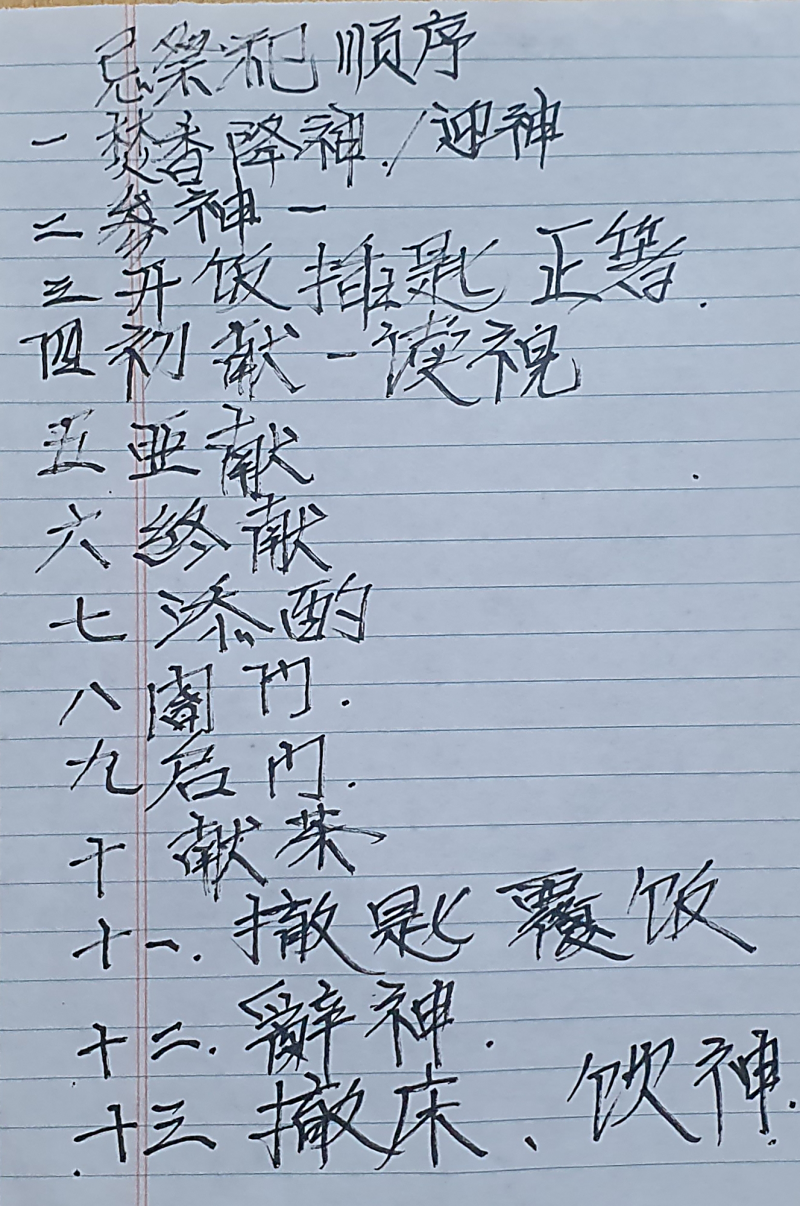 忌祭祀顺序
一 焚香降神./迎神
二 参神 一
三 开饭 插匙 正箸.
四 初 献 一 读祝
五 亜献
六 终献
七 添酌
八 阖门.
九 启门.
十 献茶
十一. 撤匙覆饭
十二. 辭神.
十三 撤床、饮神.